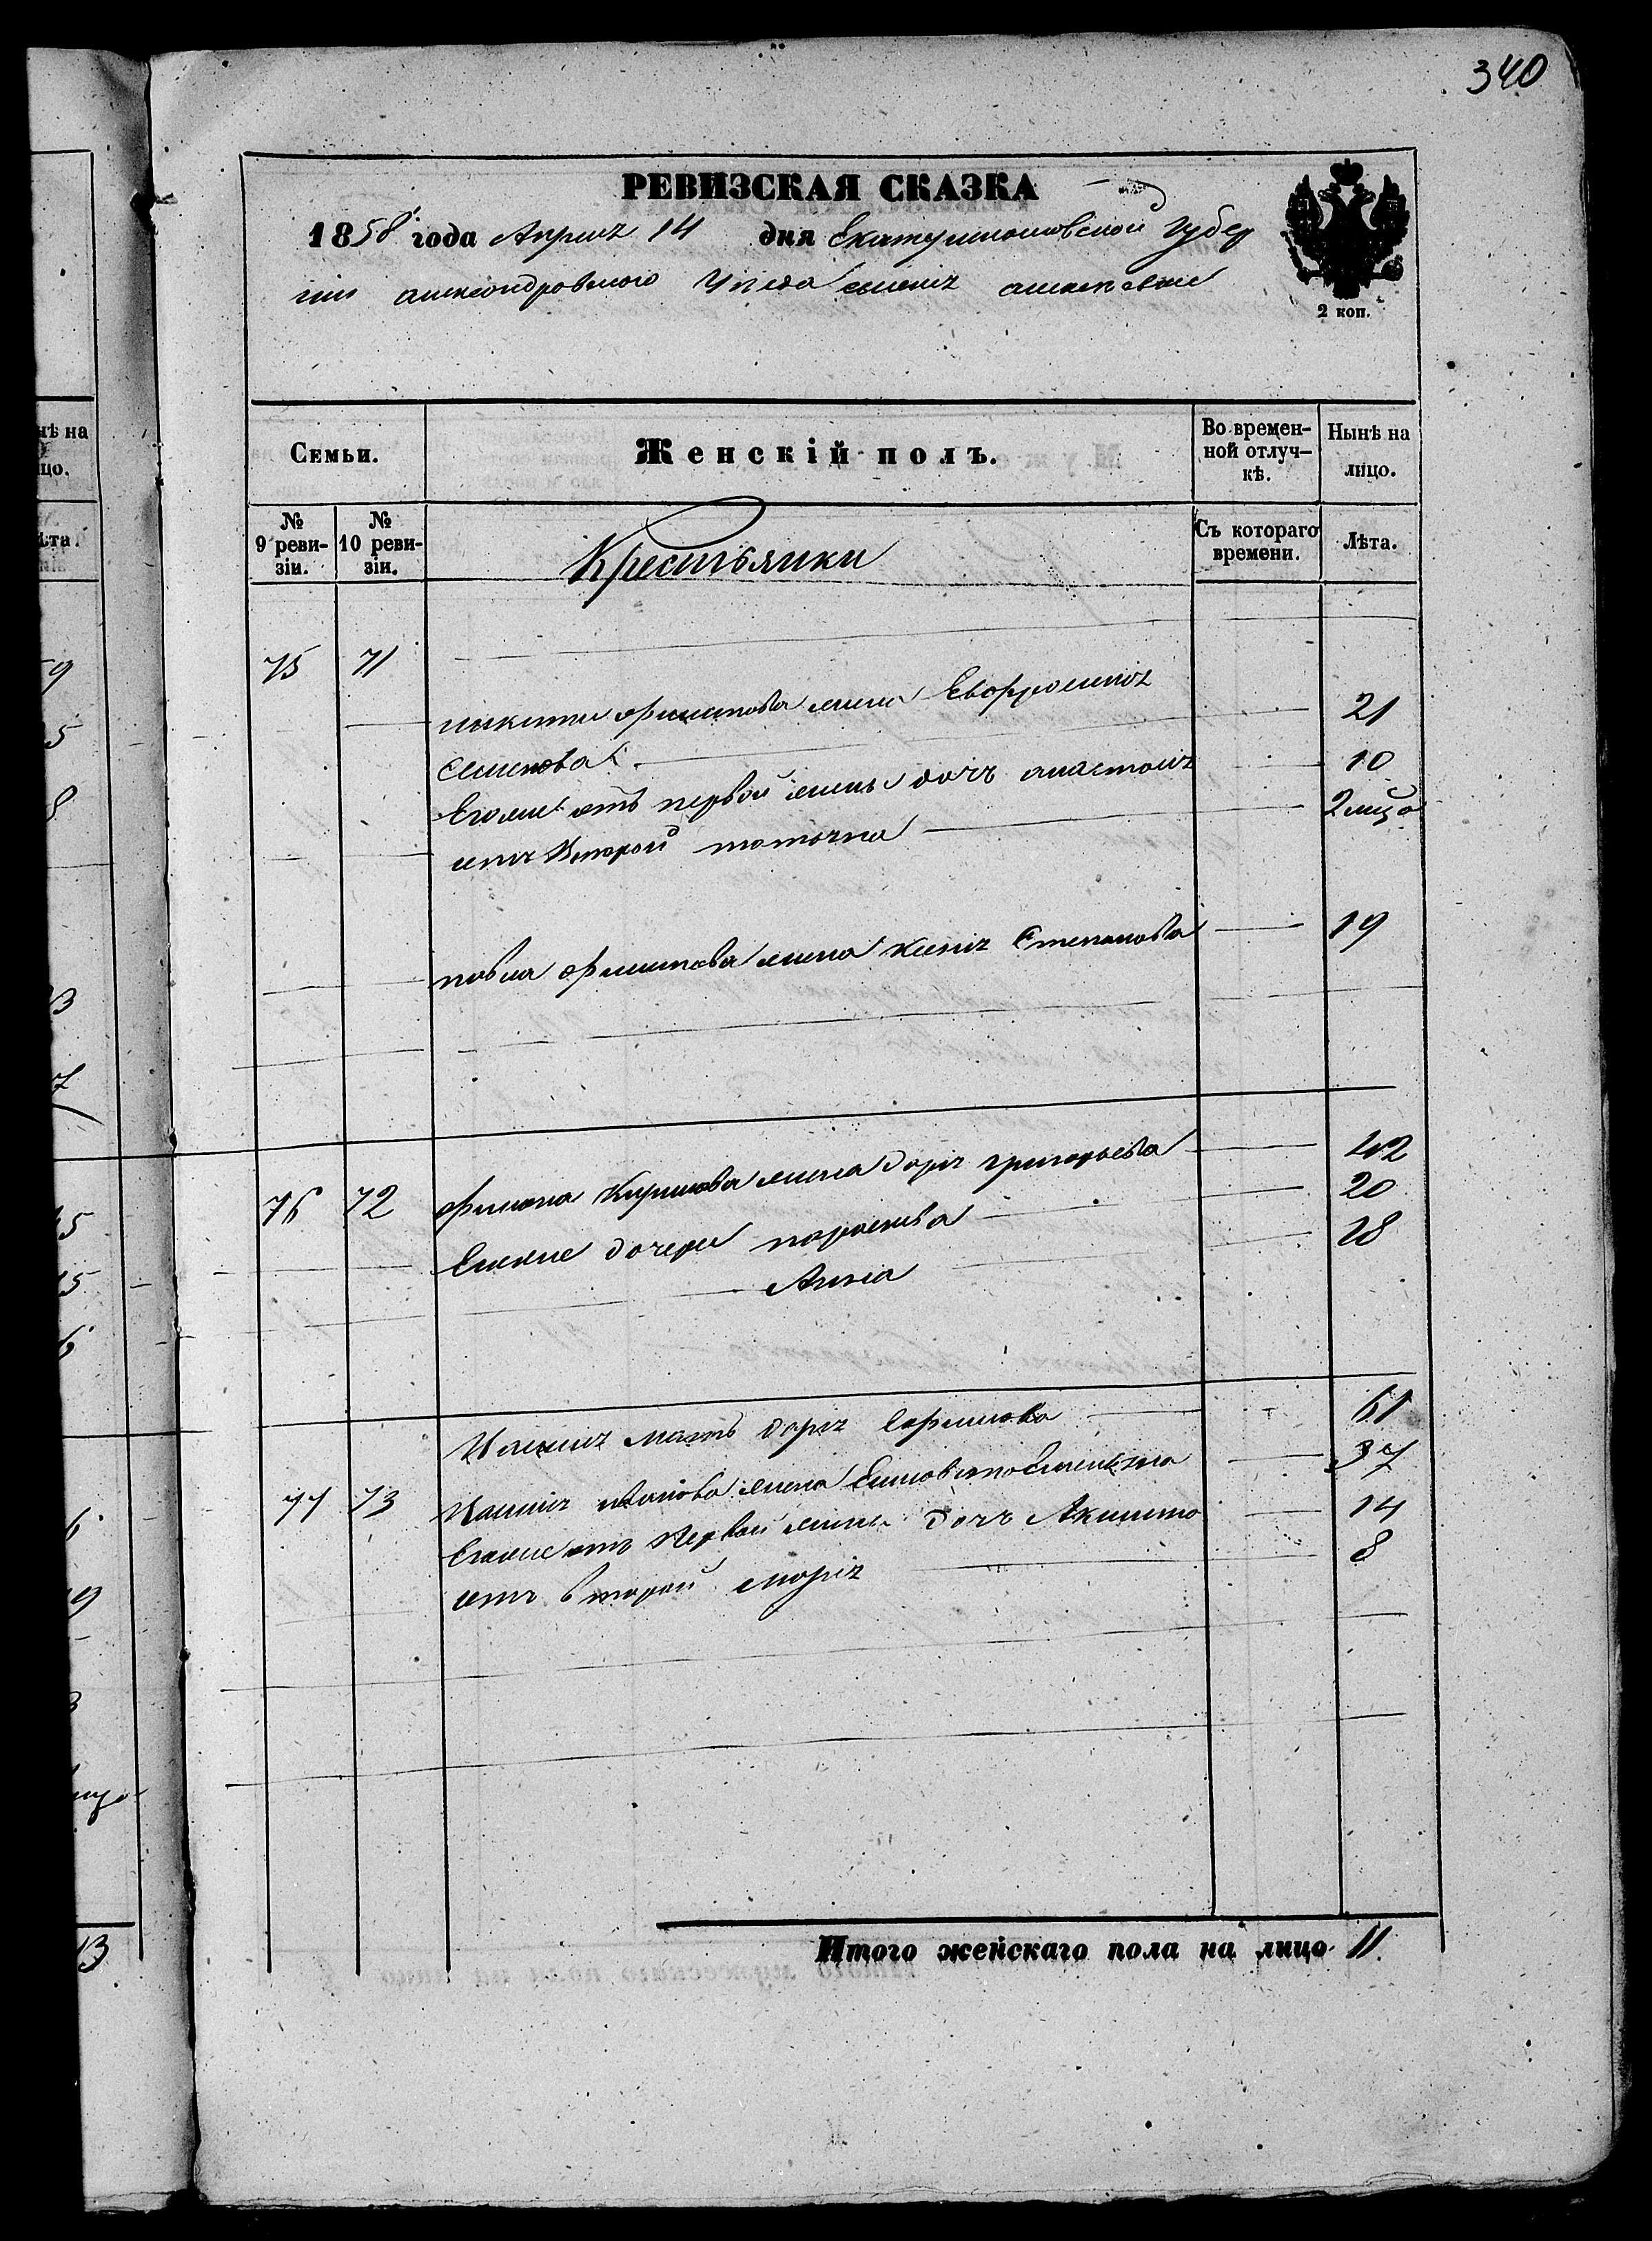 340
РЕВИЗСКАЯ СКАЗКА
1858 года Априля 14 дня Екатеринославской губер
нiи александровскаго Уезда
2 коп.
Семьи.
Женскій полъ.
Во времен-
ной отлуч-
кѣ.
Нынѣ на
лицо.
№
9 реви-
зіи.
№
10 реви-
зіи.
Крестьянки
Съ котораго
времени.
Лѣта.
75 71
никиты филипова жена Евфросинія
семенова 21
Егоже отъ первой жены дочь анастасія 10
отъ Второй 2 мцо
павла филипова жена Ксенія Степанова 19
76 72 филипа Кирилова жена дарія григорьева 42
Ево же дочери парасъкева 20
Анна 18
мать дарія 61
77 73 иванова жена 37
Егоже отъ Первой жены дочь Акилина 14
отъ второй марія 8
Итого женскаго пола на лицо 11.